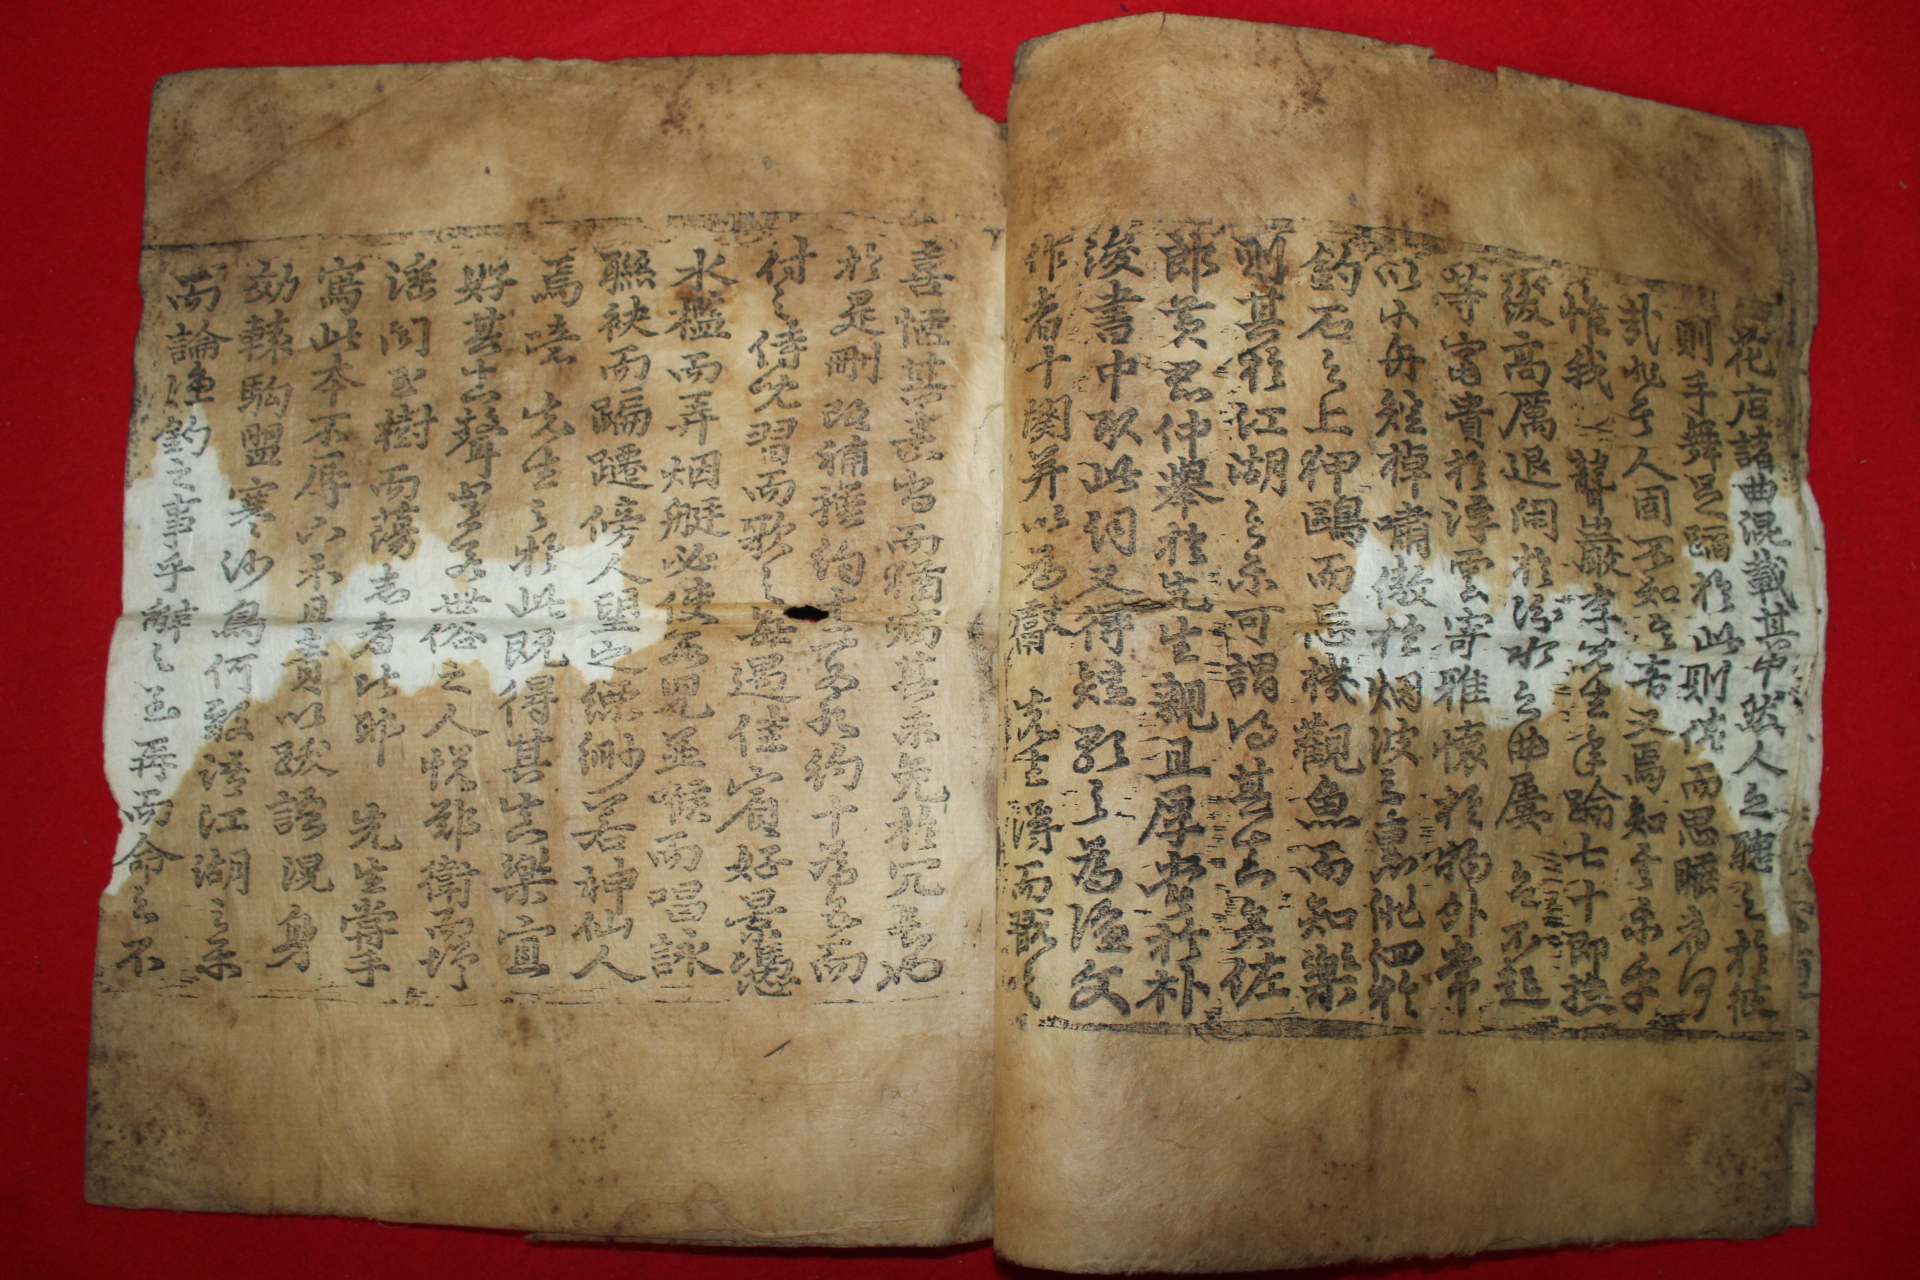 花店諸曲混載其中然人之聽之於彼
則手舞足蹈於此則倦而思睡者何
哉非其人固不知其音又焉知其樂乎
惟我 聾巖李先生年踰七十即投
紱高厲退閒於汾水之曲屢召不起
等富貴於浮雲寄雅懷於物外常
以小舟短棹嘯傲於烟波之裏徘徊於
釣石之上狎鷗而忘機觀魚而知樂
則其於江湖之樂可謂得其真矣佐
郎黃君仲擧於先生親且厚矣嘗於朴
浚書中取此詞又得短歌之爲漁父
作者十闋并以爲獻 先生得而玩之
喜愜其素尚而猶病其未免於冗長也
於是刪改補撰約十二爲九約十爲五而
付之侍兒習而歌之每遇佳賓好景憑
水檻而弄烟艇必使數兒並喉而唱詠
聯袂而蹁躚傍人望之縹緲若神仙人
焉噫 先生之於此既得其真樂宜
好其真聲豈若世俗之人悅鄭衛而增
淫聞玉樹而蕩志者比耶 先生嘗手
寫此本不辱下示且責以跋語滉身
効轅駒盟寒沙鳥何敢語江湖之樂
而論漁釣之事乎辭之至再而命之不